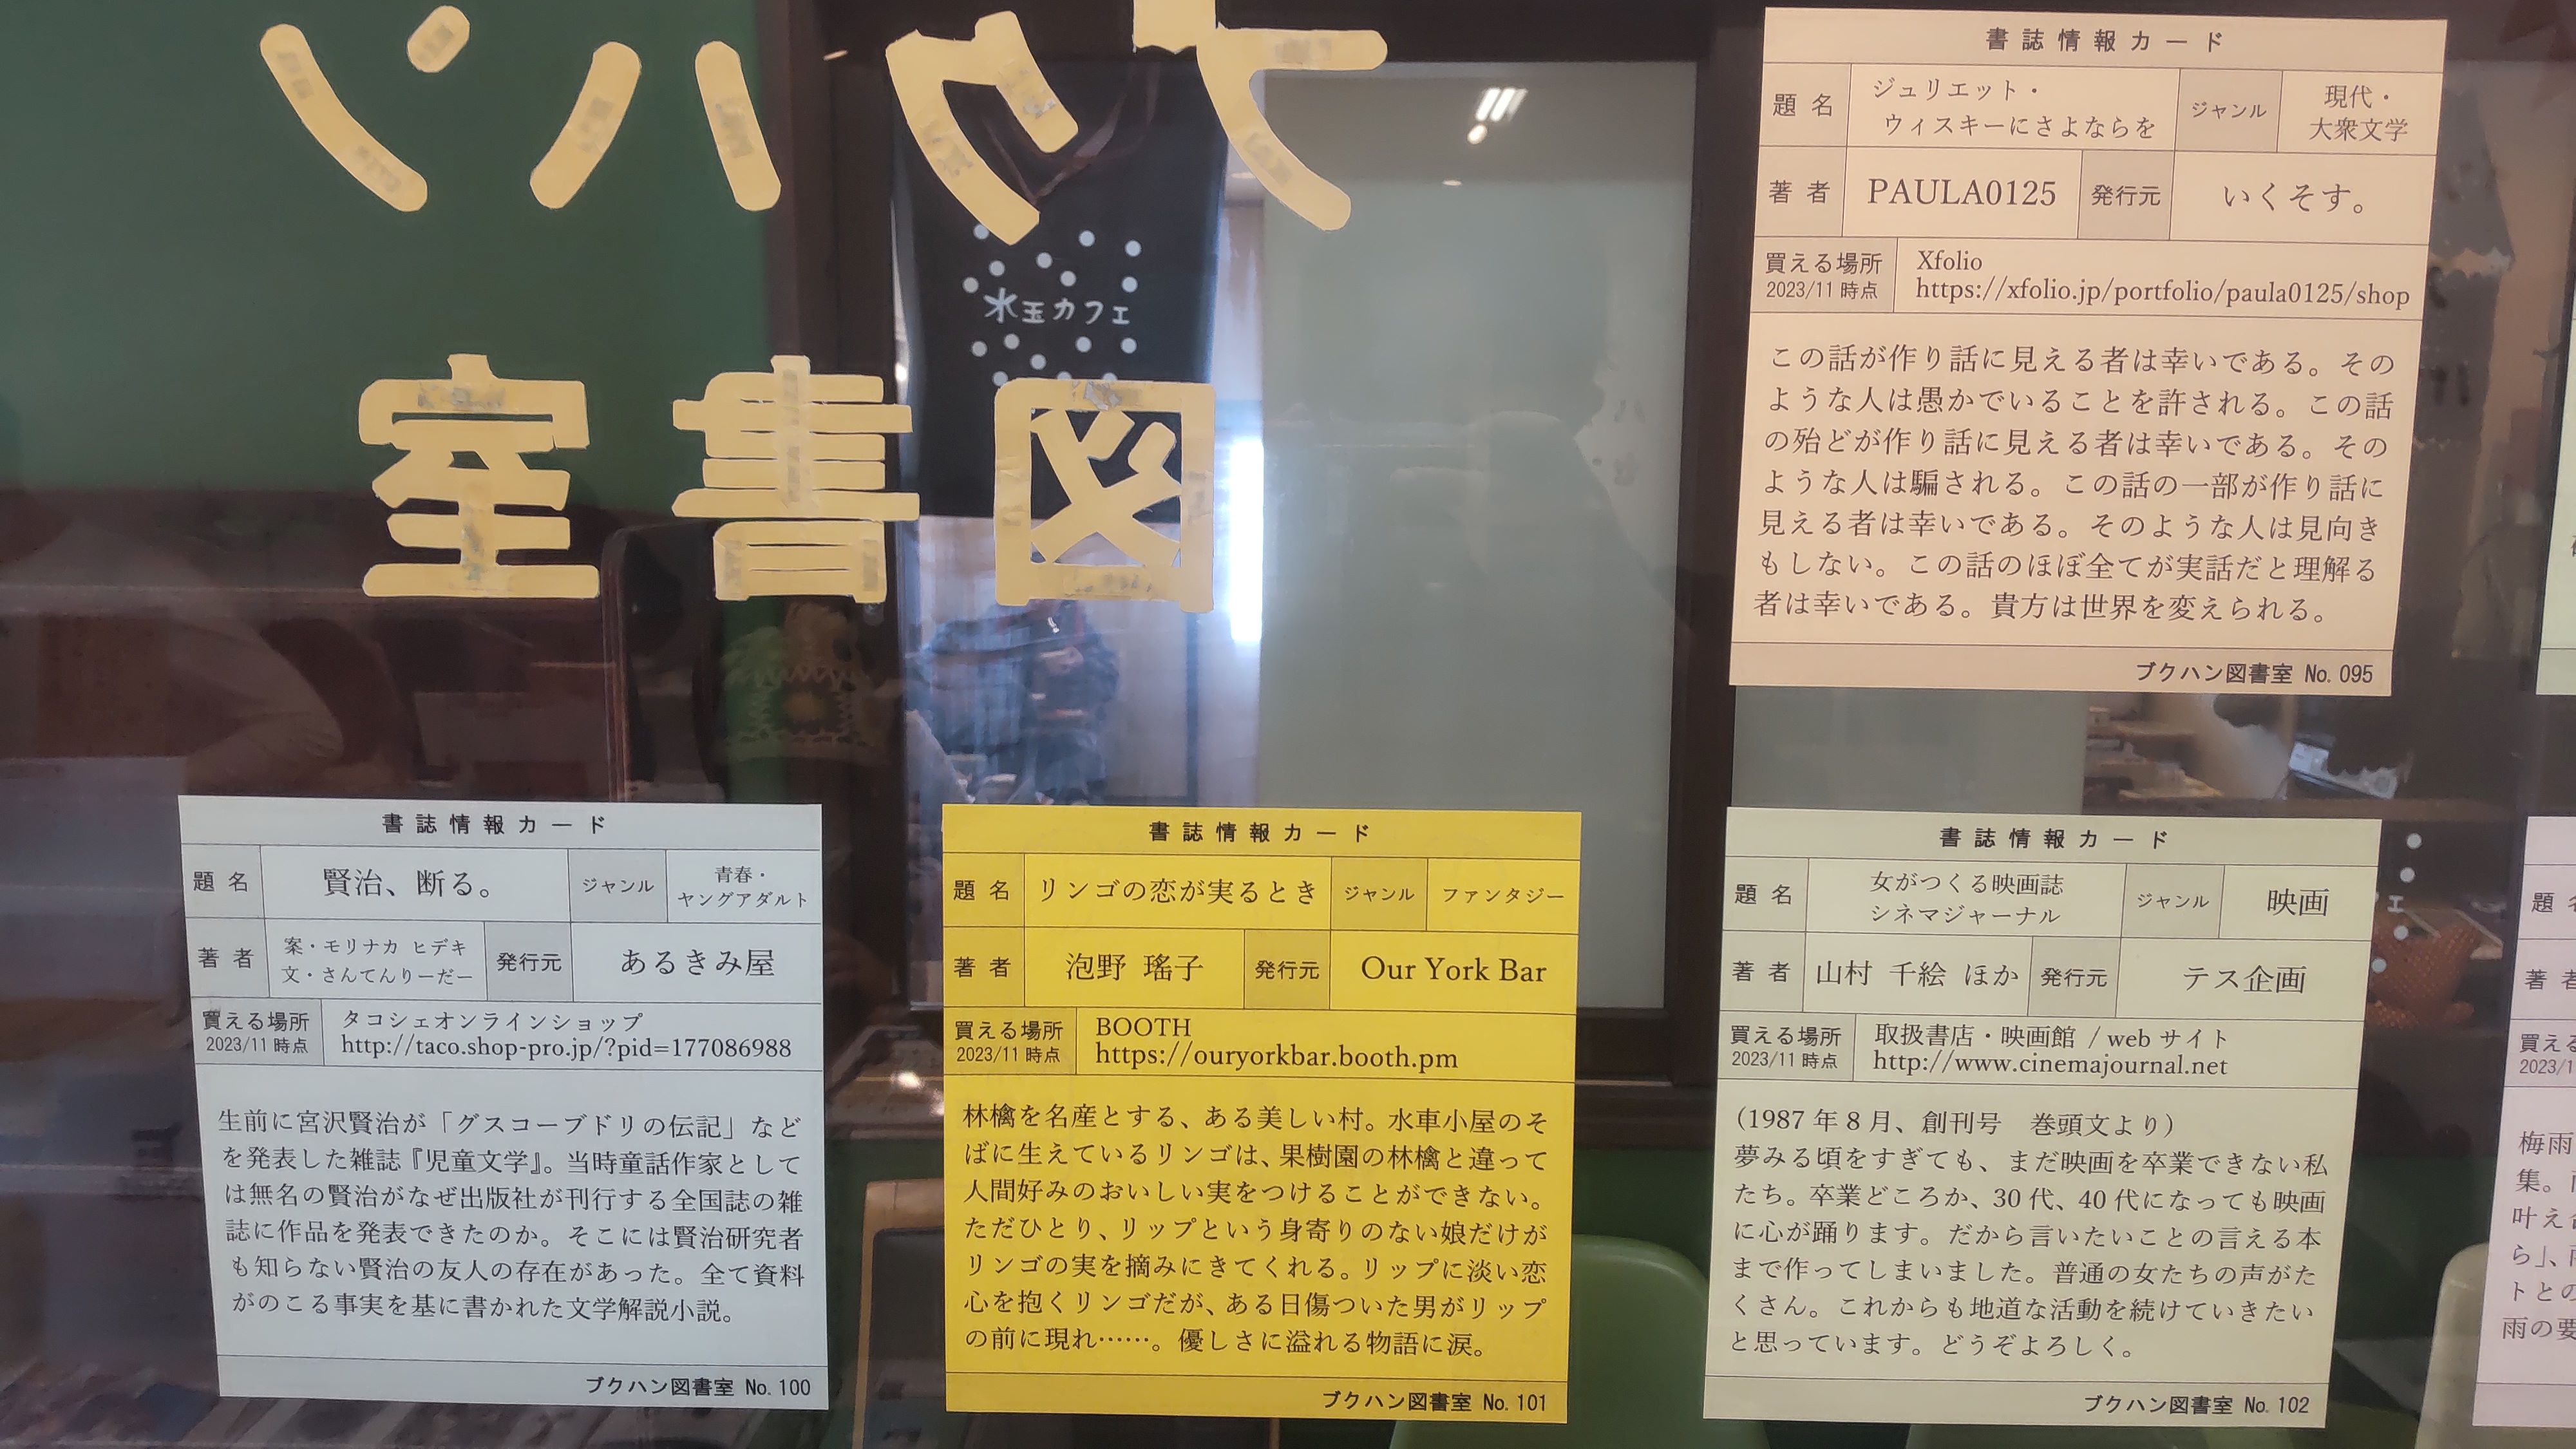 ブクハン
図書室
水玉カフェ
書誌情報カード
題名 ジュリエット・
ウィスキーにさよならを
ジャンル 現代・
大衆文学
著者 PAULA0125 発行元 いくそす。
買える場所 Xfolio
2023/11 時点 https://xfolio.jp/portfolio/paula0125/shop
この話が作り話に見える者は幸いである。その
ような人は愚かでいることを許される。この話
の殆どが作り話に見える者は幸いである。その
ような人は騙される。この話の一部が作り話に
見える者は幸いである。そのような人は見向き
もしない。この話のほぼ全てが実話だと理解る
者は幸いである。貴方は世界を変えられる。
ブクハン図書室 No. 095
書誌情報カード
題名 賢治、断る。 ジャンル 青春・
ヤングアダルト
著者 案・モリナカ ヒデキ
文・さんてんりーだー
発行元 あるきみ屋
買える場所 タコシェオンラインショップ
2023/11 時点 http://taco.shop-pro.jp/?pid=177086988
生前に宮沢賢治が「グスコーブドリの伝記」など
を発表した雑誌『児童文学』。当時童話作家として
は無名の賢治がなぜ出版社が刊行する全国誌の雑
誌に作品を発表できたのか。そこには賢治研究者
も知らない賢治の友人の存在があった。全て資料
がのこる事実を基に書かれた文学解説小説。
ブクハン図書室 No. 100
書誌情報カード
題名 リンゴの恋が実るとき ジャンル ファンタジー
著者 泡野 瑤子 発行元 Our York Bar
買える場所 BOOTH
2023/11 時点 https://ouryorkbar.booth.pm
林檎を名産とする、ある美しい村。水車小屋のそ
ばに生えているリンゴは、果樹園の林檎と違って
人間好みのおいしい実をつけることができない。
ただひとり、リップという身寄りのない娘だけが
リンゴの実を摘みにきてくれる。リップに淡い恋
心を抱くリンゴだが、ある日傷ついた男がリップ
の前に現れ……。優しさに溢れる物語に涙。
ブクハン図書室 No. 101
書誌情報カード
題名 女がつくる映画誌
シネマジャーナル
ジャンル 映画
著者 山村 千絵 ほか 発行元 テス企画
買える場所 取扱書店・映画館 / web サイト
2023/11 時点 http://www.cinemajournal.net
（1987 年 8 月、創刊号　巻頭文より）
夢みる頃をすぎても、まだ映画を卒業できない私
たち。卒業どころか、30 代、40 代になっても映画
に心が踊ります。だから言いたいことの言える本
まで作ってしまいました。普通の女たちの声がた
くさん。これからも地道な活動を続けていきたい
と思っています。どうぞよろしく。
ブクハン図書室 No. 102
題
著
買え
2023/1
梅雨
集。
叶え
ら」、
トとの
雨の要